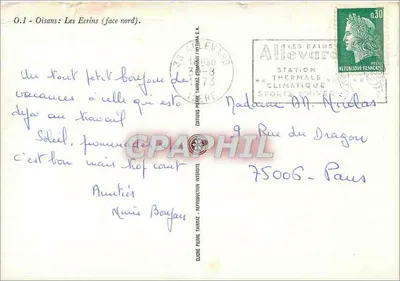 O.1 - Oisans: Les Ecrins (face nord).
38 ALLEVARD
LES BAINS
Allevard
STATION
THERMALE
CLIMATIQUE
0,30
REPUBLIQUE FRANCAISE
Un tout petit bonjour de
vacances à celle qui est
déjà au travail
Soleil, promenades
c'est bon mais trop court
Amitiés
Madame M. Nicolas
9 Rue du Dragon
75006 - Paris
EDITIONS PIERRE TAIRRAZ
CLICHÉ PIERRE TAIRRAZ - REPRODUCTION INTERDITE
CRAPHIL